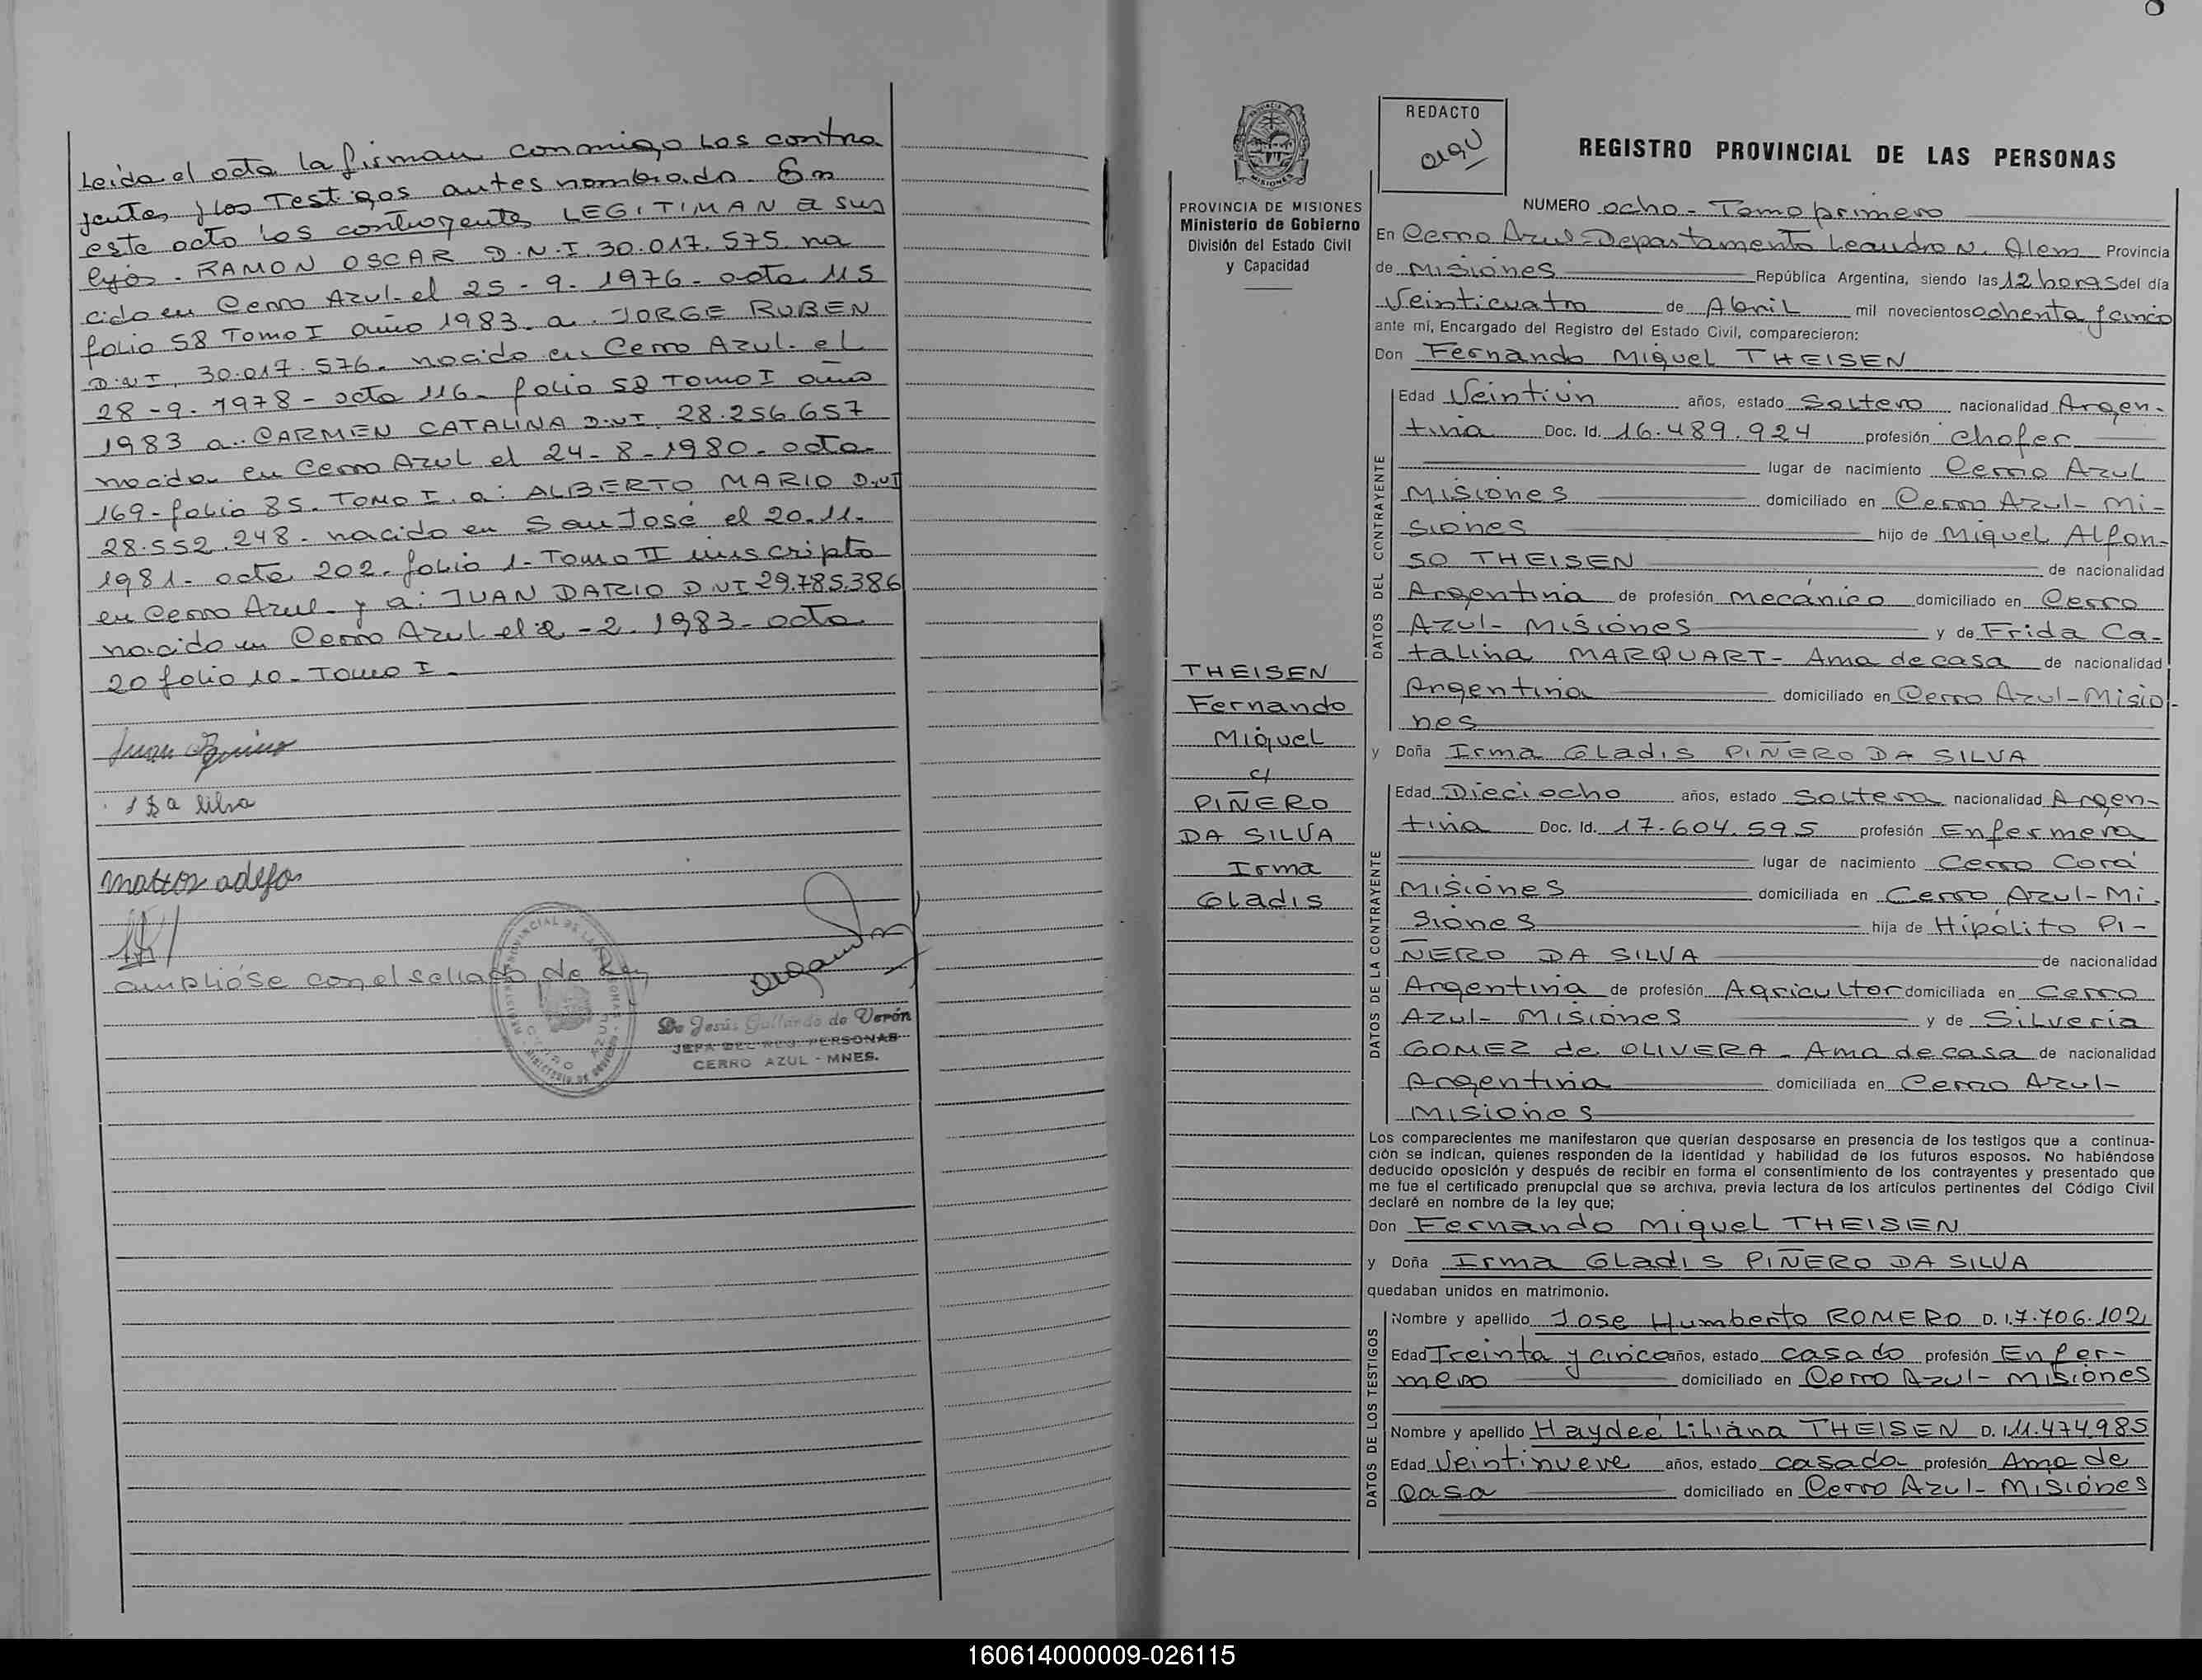 Leida el acta la firman conmigo los contra
yentes y los Testigos antes nombrado. En
este acto los contrayentes LEGITIMAN a sus
ejos - RAMON OSCAR D.N.I. 30.017.575 na
cido en Cerro Azul - el 25 - 9 - 1976 - acta 115
folio 58 Tomo I año 1983 - a. JORGE RUBEN
D.N.I. 30.017.576 - nacido en Cerro Azul - el
28 - 9 - 1978 - acta 116 - folio 58 Tomo I año
1983 a.. CARMEN CATALINA D.N.I. 28.256.657
nacida en Cerro Azul el 24 - 8 - 1980 - acta
169 - folio 85 - Tomo I. a: ALBERTO MARIO D.NI
28.552.248 - nacido en San José el 20.11.
1981 - acta 202 - folio 1 - Tomo II inscripto
en Cerro Azul - y a: JUAN DARIO D NI 29.785.386
nacido en Cerro Azul el 2 - 2 - 1983 - acta
20 folio 10 - Tomo I -
Juan
da silva
ampliose con el sellado de Ley
De Jesús Gallardo de Verón
JEFA DEL REG. PERSONAS
CERRO AZUL - MNES.
8
REDACTO
REGISTRO PROVINCIAL DE LAS PERSONAS
PROVINCIA DE MISIONES
Ministerio de Gobierno
División del Estado Civil
y Capacidad
THEISEN
Fernando
Miguel
c/
PIÑERO
DA SILVA
Irma
Gladis
NUMERO ocho - Tomo primero
En Cerro Azul - Departamento Leandro N. Alem Provincia
de Misiones República Argentina, siendo las 12 horas del día
Veinticuatro de Abril mil novecientos ochenta y cinco
ante mí, Encargado del Registro del Estado Civil, comparecieron:
Don Fernando Miguel THEISEN
DATOS DEL CONTRAYENTE
Edad Veintiún años, estado Soltero nacionalidad Argen-
tina Doc. Id. 16.489.924 profesión chofer
lugar de nacimiento Cerro Azul
Misiones domiciliado en Cerro Azul - Mi-
siones hijo de Miguel Alfon-
so THEISEN de nacionalidad
Argentina de profesión mecánico domiciliado en Cerro
Azul - Misiones y de Frida Ca-
talina MARQUART - Ama de casa de nacionalidad
Argentina domiciliado en Cerro Azul - Misio-
nes
y Doña Irma Gladis PIÑERO DA SILVA
DATOS DE LA CONTRAYENTE
Edad Dieciocho años, estado Soltera nacionalidad Argen-
tina Doc. Id. 17.604.595 profesión Enfermera
lugar de nacimiento Cerro Corá
Misiones domiciliada en Cerro Azul - Mi-
siones hija de Hipólito PI-
ÑERO DA SILVA de nacionalidad
Argentina de profesión Agricultor domiciliada en Cerro
Azul - Misiones y de Silveria
GOMEZ de OLIVERA - Ama de casa de nacionalidad
Argentina domiciliada en Cerro Azul -
Misiones
Los comparecientes me manifestaron que querían desposarse en presencia de los testigos que a continua-
ción se indican, quienes responden de la identidad y habilidad de los futuros esposos. No habiéndose
deducido oposición y después de recibir en forma el consentimiento de los contrayentes y presentado que
me fue el certificado prenupcial que se archiva, previa lectura de los artículos pertinentes del Código Civil
declaré en nombre de la ley que;
Don Fernando Miguel THEISEN
y Doña Irma Gladis PIÑERO DA SILVA
quedaban unidos en matrimonio.
DATOS DE LOS TESTIGOS
Nombre y apellido Jose Humberto ROMERO D. I. 7.706.102
Edad Treinta y cinco años, estado casado profesión Enfer-
mero domiciliado en Cerro Azul - Misiones
Nombre y apellido Haydeé Liliana THEISEN D. I 11.474.985
Edad Veintinueve años, estado casada profesión Ama de
Casa domiciliado en Cerro Azul - Misiones
160614000009-026115